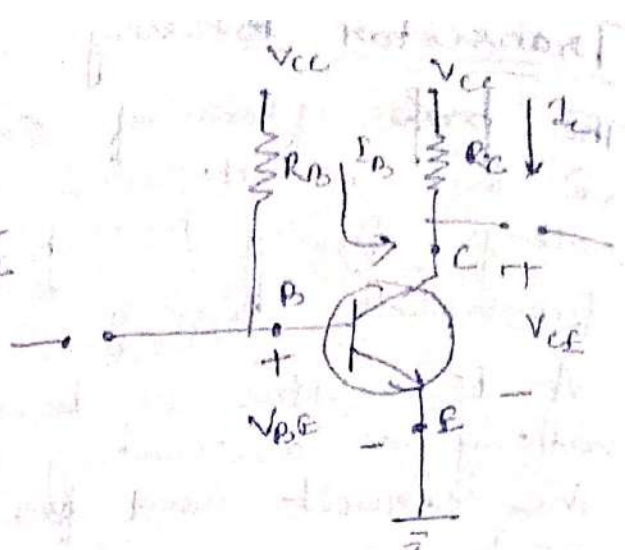 VCC
VCC
IC
RB
IB
RC
C
+
B
+
VCE
VBE
-
E
-